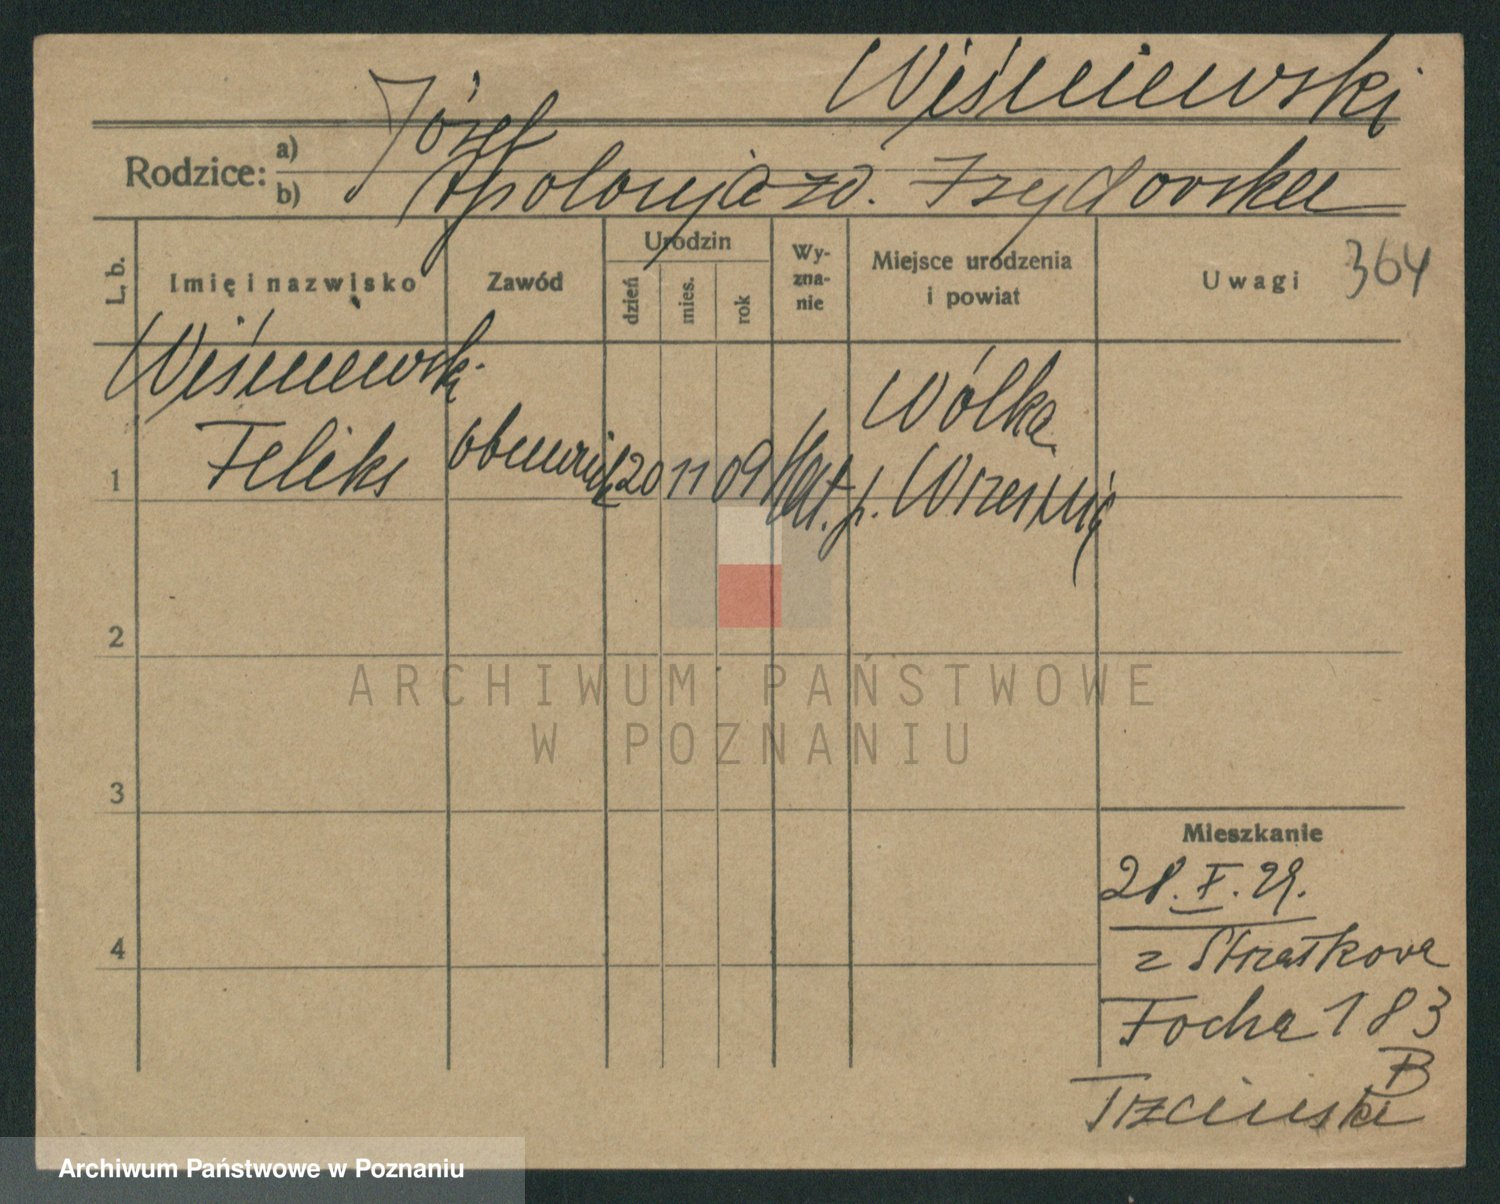 Wiśniewski
Rodzice: a) Józef
b) Apolonja zd. Izydorska
L. b. Imię i nazwisko Zawód Urodzin dzień mies. rok Wy-zna-nie Miejsce urodzenia i powiat Uwagi 364
Wiśniewski Wólka
1 Feliks 20 11 09 kat. p. Września
2
ARCHIWUM PAŃSTWOWE
W POZNANIU
3
Mieszkanie
28. X. 29.
4 z Strzałkowa
Focha 183
B
Trzcińska
Archiwum Państwowe w Poznaniu